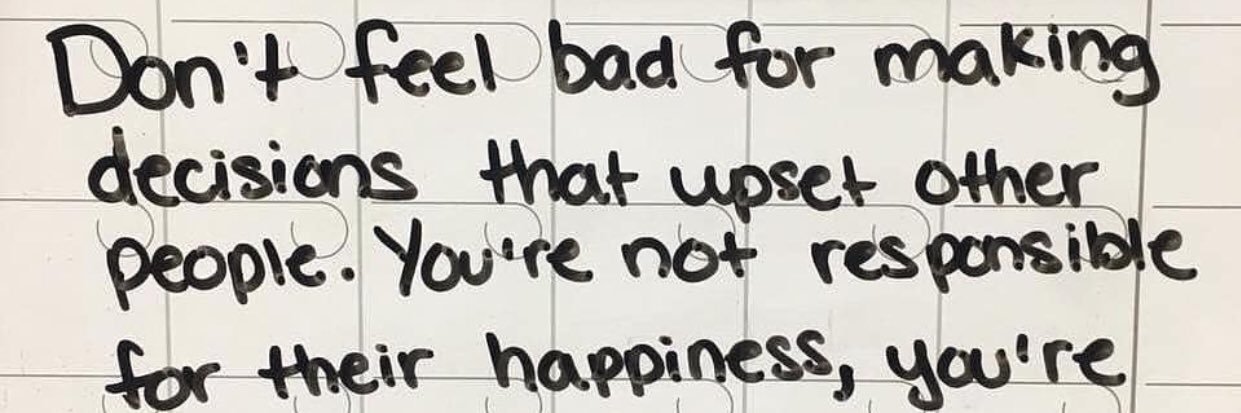 Don't feel bad for making
decisions that upset other
people. You're not responsible
for their happiness, you're